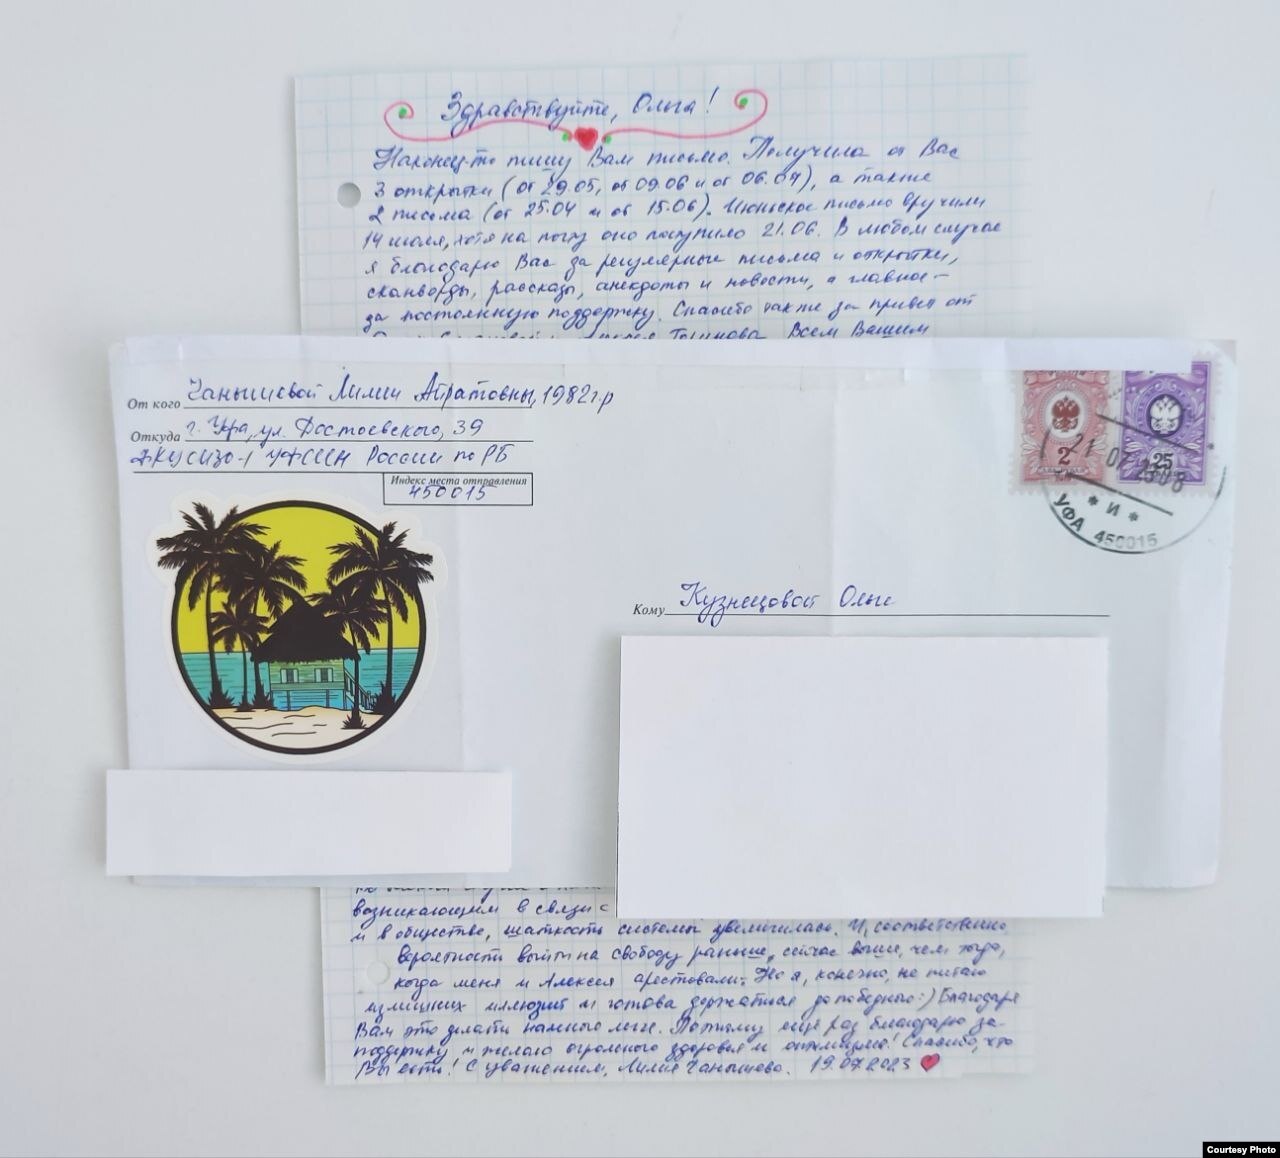 Здравствуйте, Ольга!
Наконец-то пишу Вам письмо. Получила от Вас
3 открытки (от 29.05, от 09.06 и от 06.07), а также
2 письма (от 25.04 и от 15.06). Июньское письмо вручили
14 июля, хотя на почту оно поступило 21.06. В любом случае
я благодарю Вас за регулярные письма и открытки,
сканворды, рассказы, анекдоты и новости, а главное –
за постоянную поддержку. Спасибо также за привет от
Всем Вашим
От кого Чанышевой Лилии Айратовны, 1982 г.р
Откуда г. Уфа, ул. Достоевского, 39
ФКУ СИЗО-1 УФСИН России по РБ
Индекс места отправления
450015
2
25
21 07
УФА 450015
* И *
Кому Кузнецовой Ольге
возникающим в связи с
и в обществе, шаткость системы увеличилась. И, соответственно,
вероятность выйти на свободу раньше, сейчас выше, чем тогда,
когда меня и Алексея арестовали. Но я, конечно, не питаю
излишних иллюзий и готова держаться до победного:) Благодаря
Вам это делать намного легче. Поэтому еще раз благодарю за
поддержку и желаю огромного здоровья и оптимизма! Спасибо, что
Вы есть! С уважением, Лилия Чанышева. 19.07.2023
Courtesy Photo